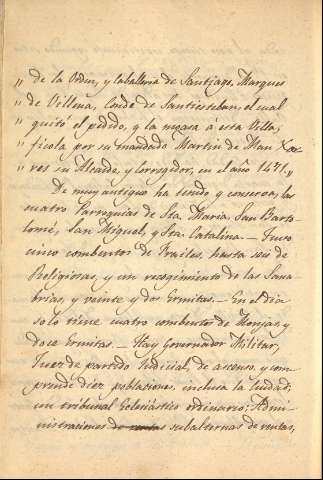 " de la Orden, y Caballeria de Santiago, Marques
" de Villena, Conde de Santiesteban, el cual
" quitó el pedido, y la moneda à esta Villa,
" fizola por su mandado Martin de
" res su Alcaide, y Corregidor, en el año 1471"
De muy antiguo ha tenido y conserva, las
cuatro Parroquias de Sta. Maria, San Barto-
lomé, San Miguel, y Sta. Catalina. - Tuvo
cinco combentos de Frailes, hasta seis de
Religiosas, y un recogimiento de las
y veinte y dos Ermitas. - En el dia
solo tiene cuatro combentos de Monjas y
doce Ermitas. - Hay Governador Militar,
Juez de partido Judicial, de ascenso, y com-
prende diez poblaciones, inclusa la Ciudad;
un tribunal Eclesiástico ordinario; Admi-
nistraciones de rentas subalternas de rentas,